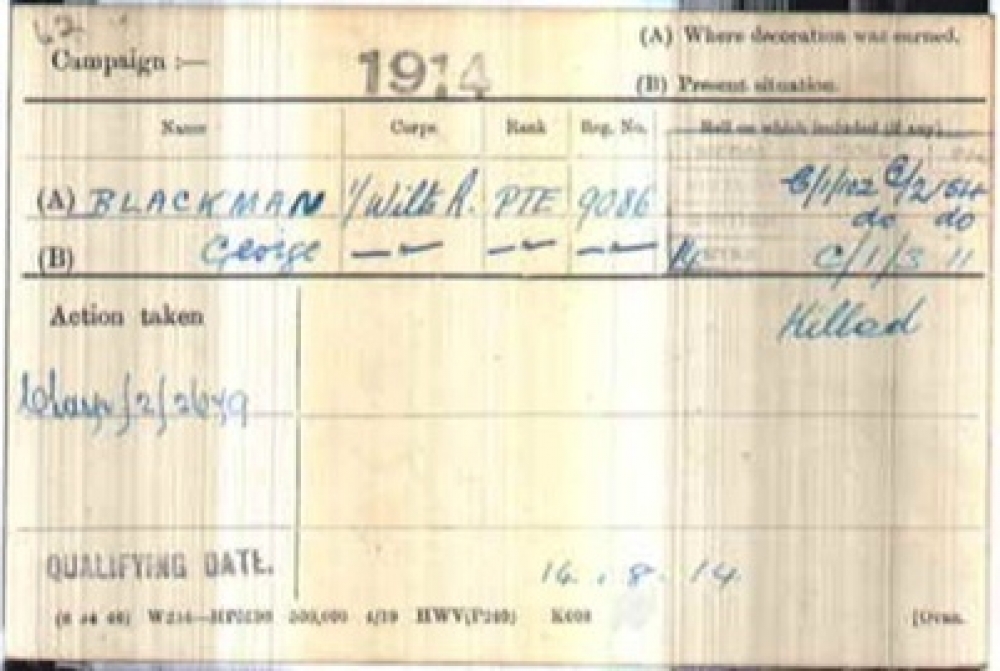 62
(A) Where decoration was earned.
Campaign :— 1914
(B) Present situation.
Name Corps Rank Reg. No. Roll on which included (if any)
(A) BLACKMAN 1/Wilts R. PTE 9086 C/2
do do
(B) George — — — C/1/3 11
Action taken Killed
Clasp/2/2649
QUALIFYING DATE. 14.8.14
500,000 4/19 HWV(P240) K608 [Over.